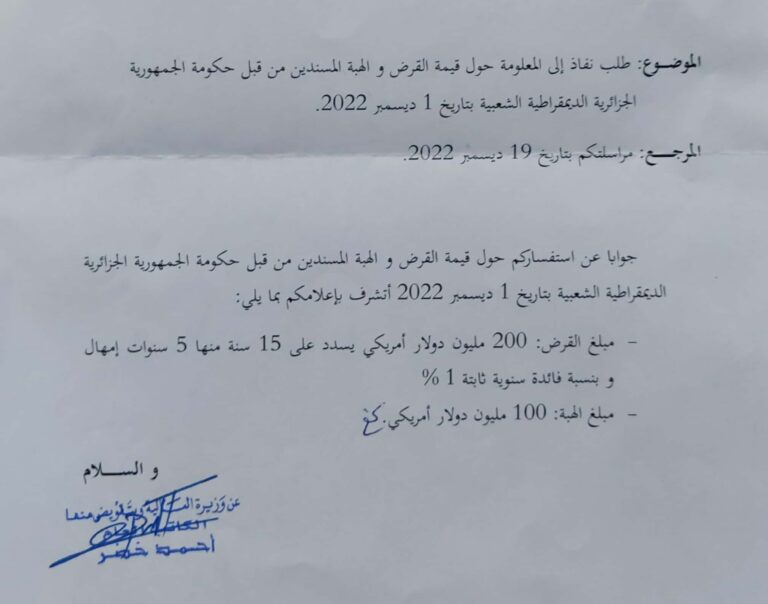 الموضوع: طلب نفاذ إلى المعلومة حول قيمة القرض و الهبة المسندين من قبل حكومة الجمهورية
الجزائرية الديمقراطية الشعبية بتاريخ 1 ديسمبر 2022.
المرجع: مراسلتكم بتاريخ 19 ديسمبر 2022.
جوابا عن استفساركم حول قيمة القرض و الهبة المسندين من قبل حكومة الجمهورية الجزائرية
الديمقراطية الشعبية بتاريخ 1 ديسمبر 2022 أتشرف بإعلامكم بما يلي:
- مبلغ القرض: 200 مليون دولار أمريكي يسدد على 15 سنة منها 5 سنوات إمهال
و بنسبة فائدة سنوية ثابتة 1 %
- مبلغ الهبة: 100 مليون دولار أمريكي.
و السلام
عن وزيرة المالية وبتفويض منها
أحمد خضر